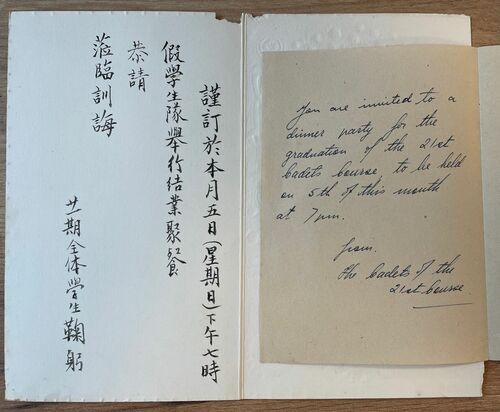 謹訂於本月五日(星期日)下午七時
假學生隊舉行結業聚餐
恭請
蒞臨訓誨
廿一期全体學生鞠躬
You are invited to a
dinner party for the
graduation of the 21st
Cadets Course, to be held
on 5th of this month
at 7pm.
from.
The Cadets of the
21st Course